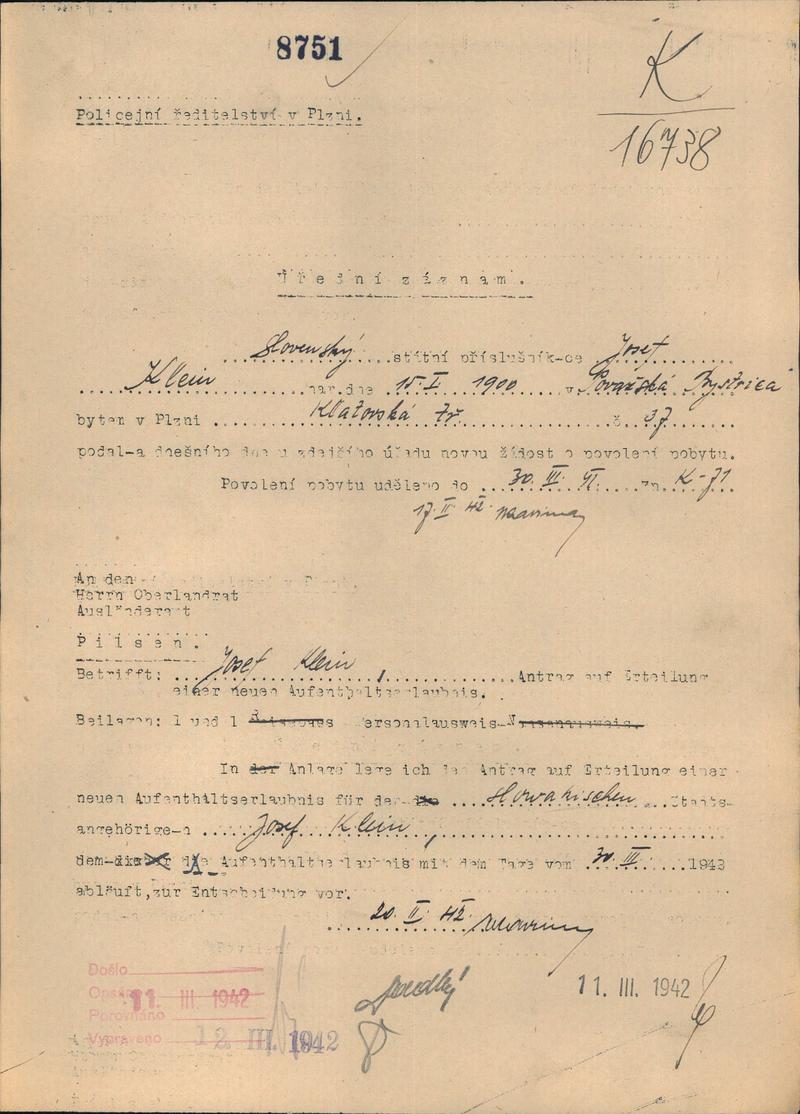 8751
K
16738
Policejní ředitelství v Plzni.
Úřední záznam.
Slovenský státní příslušník-ce Josef
Klein nar. dne 15.I. 1900 v Považská Bystrica
bytem v Plzni Klatovská tř. č. 37
podal-a dnešního dne u zdejšího úřadu novou žádost o povolení pobytu.
Povolení pobytu uděleno do 30. III. zn. K-71
17. II. 42.
An den
Herrn Oberlandrat
Ausländeramt
Pilsen.
Betrifft: Josef Klein, Antrag auf Erteilung
einer neuen Aufenthaltserlaubnis.
Beilagen: 1 und 1 Reisepass Personalausweis-
In der Anlage lege ich den Antrag auf Erteilung einer
neuen Aufenthaltserlaubnis für den-die slowakischen Staats-
angehörige-n Josef Klein,
dem- die Aufenthaltserlaubnis mit dem Tage vom 30. III. 1943
abläuft, zur Entscheidung vor.
20. II. 42.
Došlo
Opsáno 11. III. 1942
Porovnáno
Vypraveno 12. III. 1942
11. III. 1942